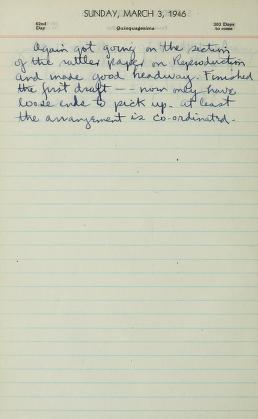 SUNDAY, MARCH 3, 1946
62nd Day
Quinquagesima
303 Days to come
Again got going on the section
of the rattler paper on Reproduction
and made good headway. Finished
the first draft -- now only have
loose ends to pick up - at least
the arrangement is co-ordinated.